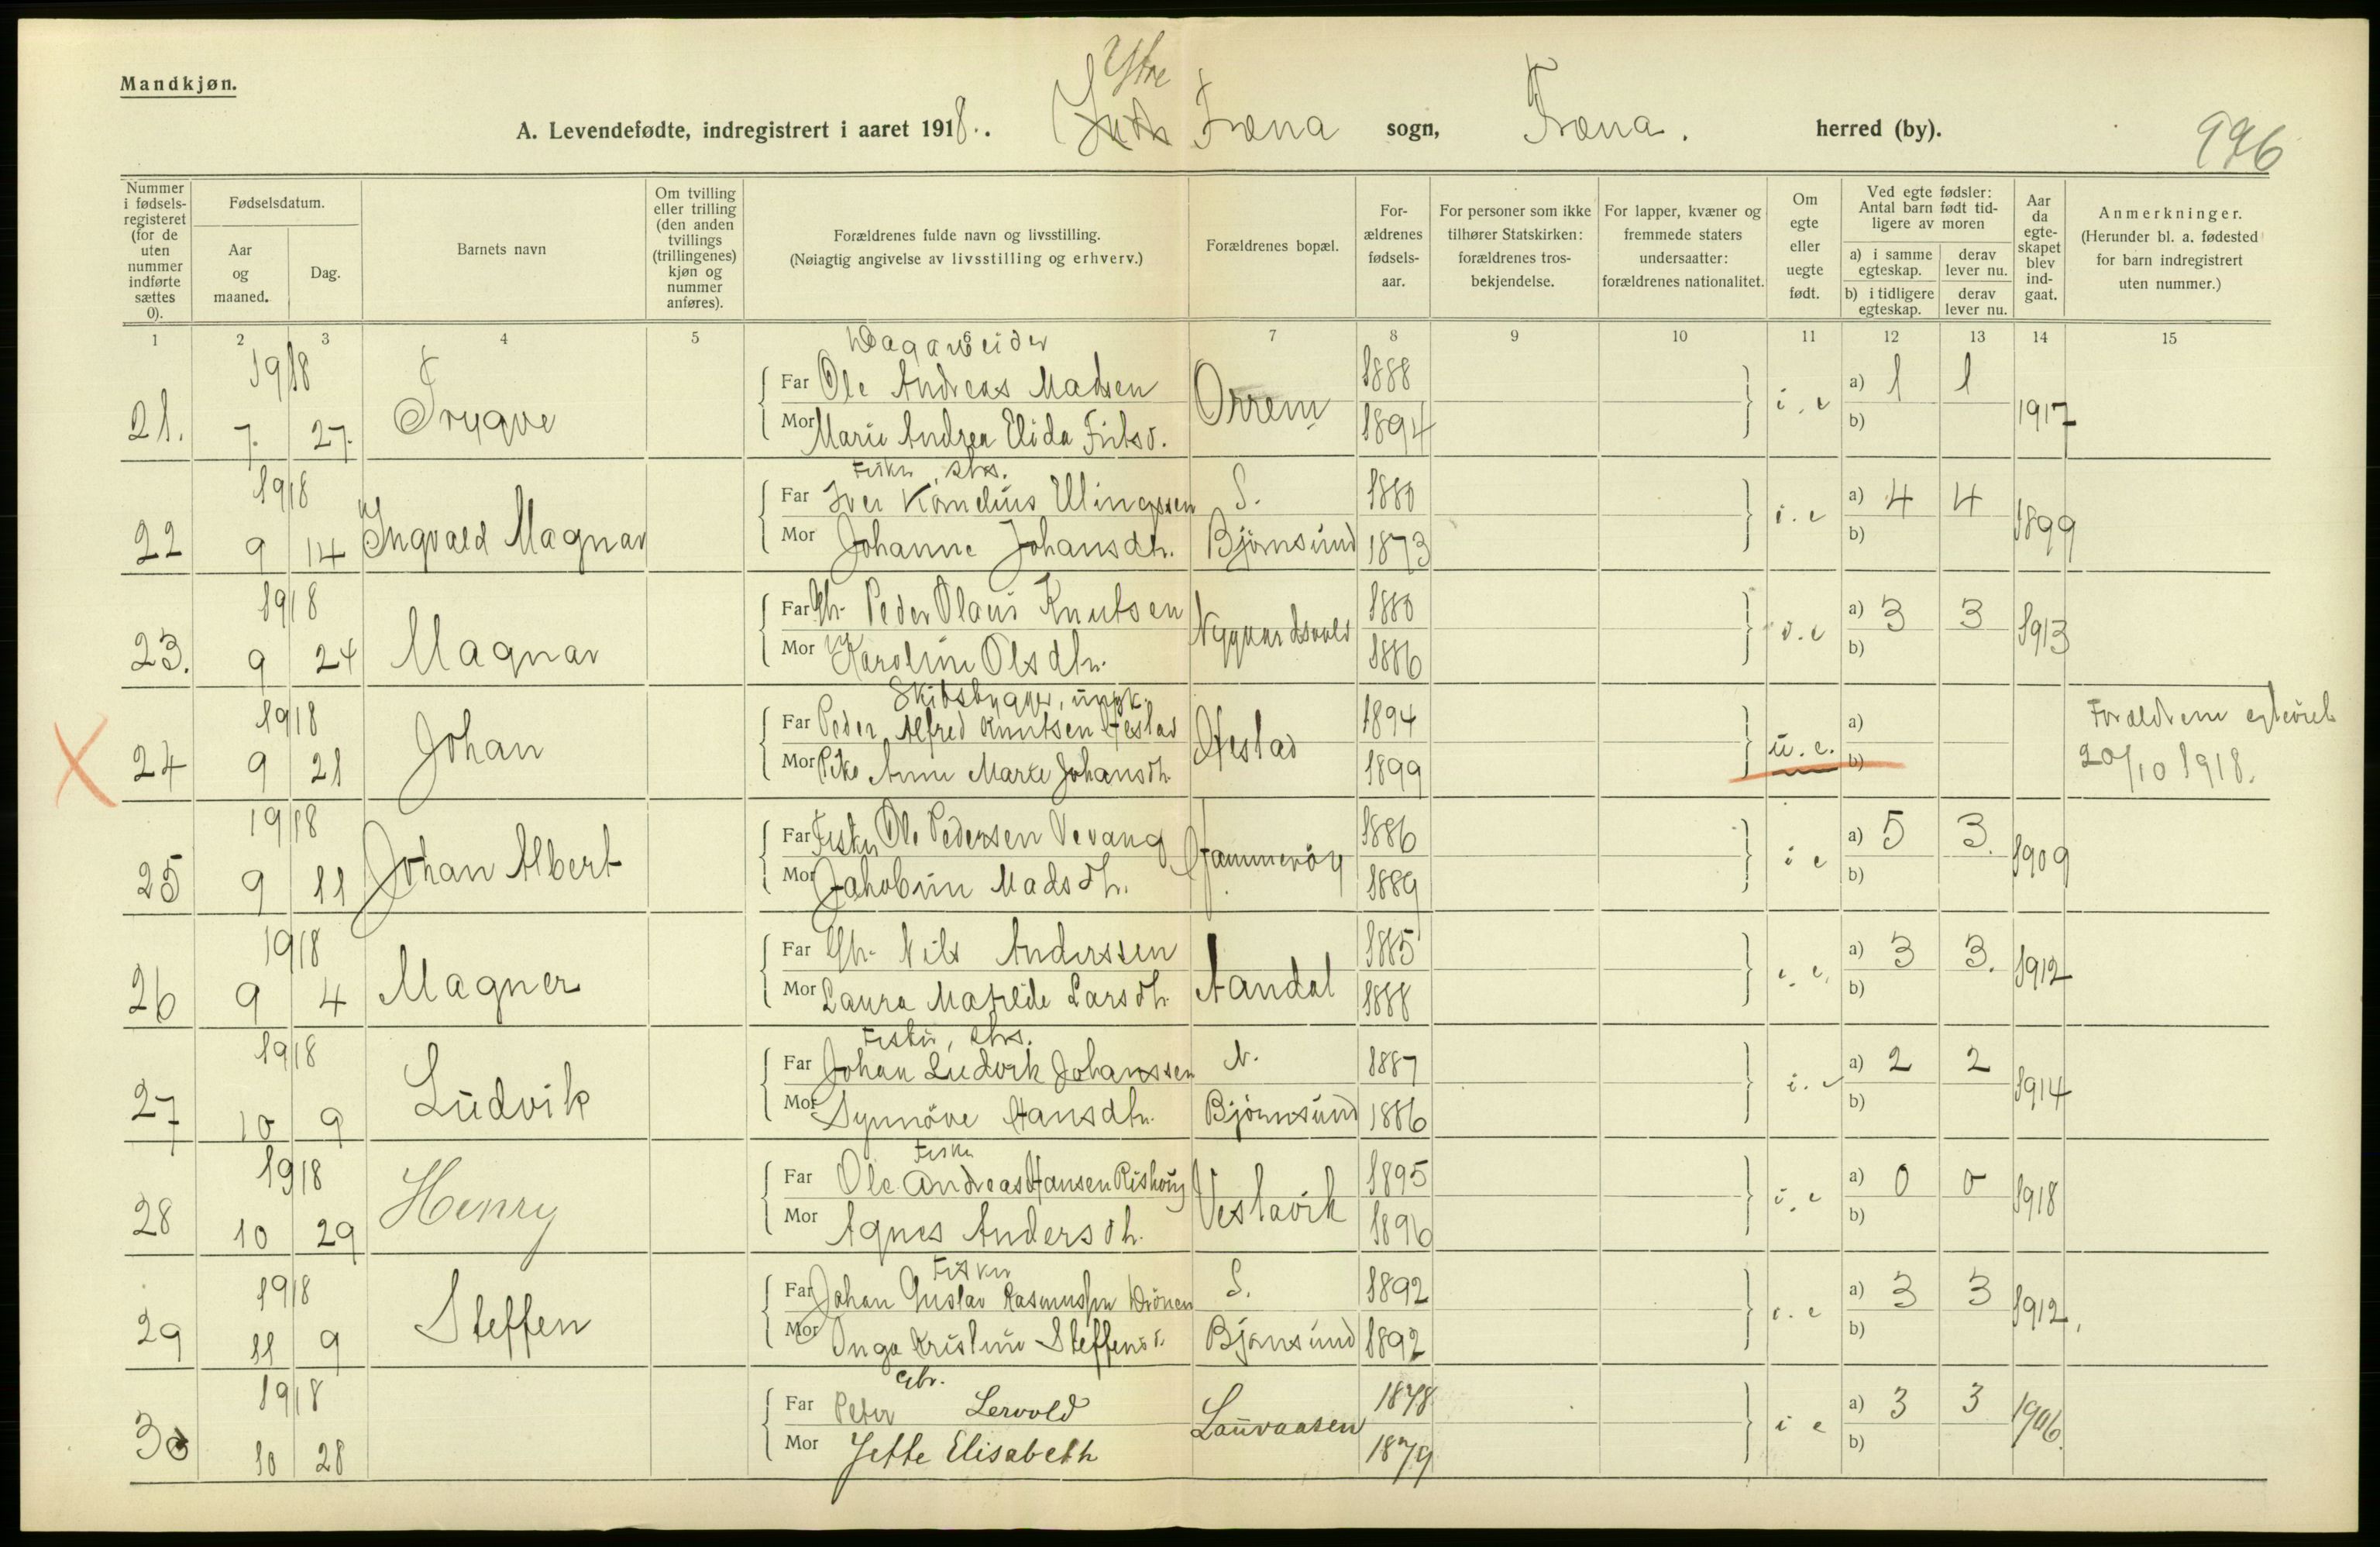 Mandkjøn.
Ytre
A. Levendefødte, indregistrert i aaret 1918. Fræna sogn, Fræna. herred (by).
996
Nummer i fødsels-registeret (for de uten nummer indførte sættes 0).
Fødselsdatum.
Aar og maaned.
Dag.
Barnets navn
Om tvilling eller trilling (den anden tvillings (trillingenes) kjøn og nummer anføres).
Forældrenes fulde navn og livsstilling.
(Nøiagtig angivelse av livsstilling og erhverv.)
Forældrenes bopæl.
For-ældrenes fødsels-aar.
For personer som ikke tilhører Statskirken: forældrenes tros-bekjendelse.
For lapper, kvæner og fremmede staters undersaatter: forældrenes nationalitet.
Om egte eller uegte født.
Ved egte fødsler: Antal barn født tid-ligere av moren
a) i samme egteskap.
derav lever nu.
b) i tidligere egteskap.
derav lever nu.
Aar da egte-skapet blev ind-gaat.
Anmerkninger.
(Herunder bl. a. fødested for barn indregistrert uten nummer.)
1 2 3 4 5 6 7 8 9 10 11 12 13 14 15
Dagarbeider
1918 Far Ole Andreas Madsen 1888 a) 1 1
21. 7. 27. Trygve Mor Marie Andrea Elida Orrem 1894 i. e b) 1917
Fisker, strs.
1918 Far Iver Kornelius Ulingssen S. 1880 a) 4 4
22 9 14 Ingvald Magnar Mor Johanne Johansdtr. Bjørnsund 1873 i. e b) 1899
1918 Far Gbr. Peder Olaus Knutsen 1880 a) 3 3
23. 9 24 Magnar Mor Karoline Olsdtr. 1886 i. e b) 1913
Skibsbygger, ungk.
1918 Far Peder Alfred Knutsen Hestad 1894 a) Forældrene egteviet
24 9 21 Johan Mor Pike Anne Marte Johansdtr. Hestad 1899 u. e. b) 20/10 1918.
1918 Far Fisker Ole Pedersen Vevang 1886 a) 5 3.
25 9 11 Johan Albert Mor Jakobine Madsdtr. 1889 i e b) 1909
1918 Far Gbr. Nils Anderssen 1885 a) 3 3.
26 9 4 Magner Mor Laura Matilde Larsdtr. Aandal 1888 i. e. b) 1912
Fisker, strs.
1918 Far Johan Ludvik Johanssen N. 1887 a) 2 2
27 10 9 Ludvik Mor Synnöve Hansdtr. Bjørnsund 1886 i. e b) 1914
Fisker
1918 Far Ole Andreas Hansen Rishaug 1895 a) 0 0
28 10 29 Henry Mor Agnes Andersdtr. Vestavik 1896 i. e b) 1918
Fisker
1918 Far Johan Gustav Rasmussen S. 1892 a) 3 3
29 11 9 Steffen Mor Inga Kristine Steffensd. Bjørnsund 1892 i. e b) 1912
Gbr.
1918 Far Peter Lervold 1878 a) 3 3
30 10 28 Mor Jette Elisabeth Lauvaasen 1879 i e b) 1906.